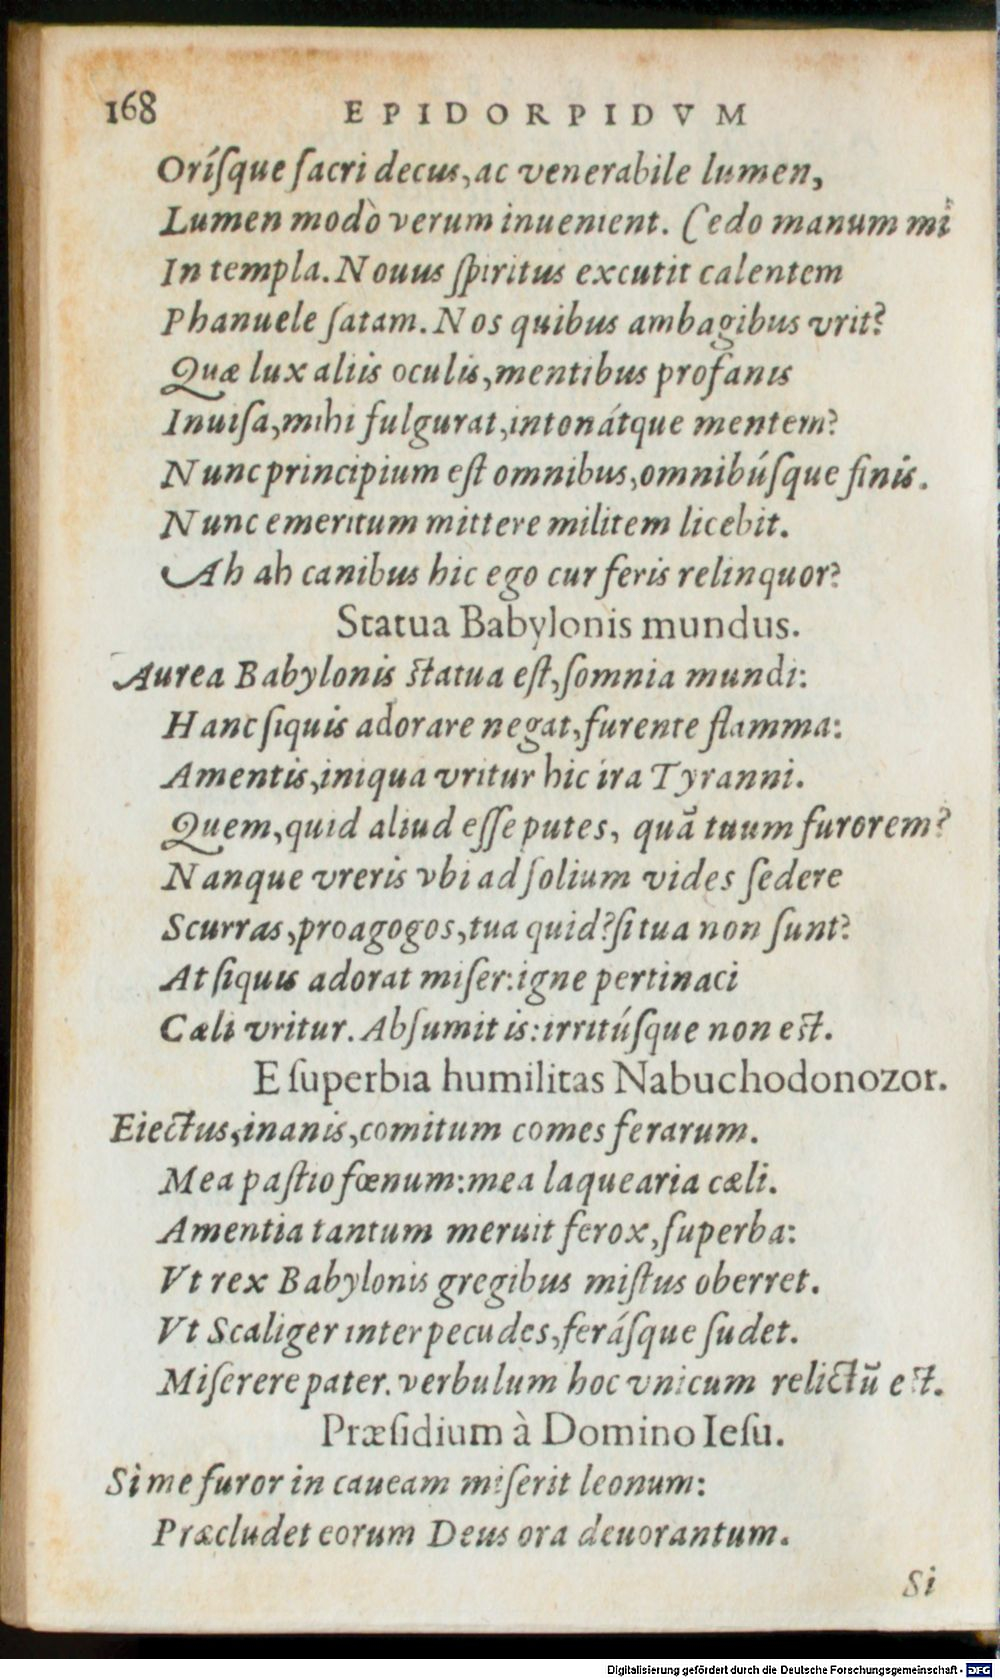 168 EPIDORPIDVM
Oríſque ſacri decus, ac venerabile lumen,
Lumen modò verum inuenient. Cedo manum mî
In templa. Nouus ſpiritus excutit calentem
Phanuele ſatam. Nos quibus ambagibus vrit?
Quæ lux aliis oculis, mentibus profanis
Inuiſa, mihi fulgurat, intonátque mentem?
Nunc principium eſt omnibus, omnibúſque finis.
Nunc emeritum mittere militem licebit.
Ah ah canibus hic ego cur feris relinquor?
Statua Babylonis mundus.
Aurea Babylonis ſtatua eſt, ſomnia mundi:
Hanc ſiquis adorare negat, furente flamma:
Amentis, iniqua vritur hic ira Tyranni.
Quem, quid aliud eſſe putes, quā tuum furorem?
Nanque vreris vbi ad ſolium vides ſedere
Scurras, proagogos, tua quid? ſi tua non ſunt?
At ſiquis adorat miſer: igne pertinaci
Cæli vritur. Abſumit is: irritúſque non eſt.
E ſuperbia humilitas Nabuchodonozor.
Eiectus, inanis, comitum comes ferarum.
Mea paſtio fœnum: mea laquearia cæli.
Amentia tantum meruit ferox, ſuperba:
Vt rex Babylonis gregibus miſtus oberret.
Vt Scaliger inter pecudes, feráſque ſudet.
Miſerere pater. verbulum hoc vnicum relictū eſt.
Præſidium à Domino Ieſu.
Si me furor in caueam miſerit leonum:
Præcludet eorum Deus ora deuorantum.
Si
Digitalisierung gefördert durch die Deutsche Forschungsgemeinschaft - DFG